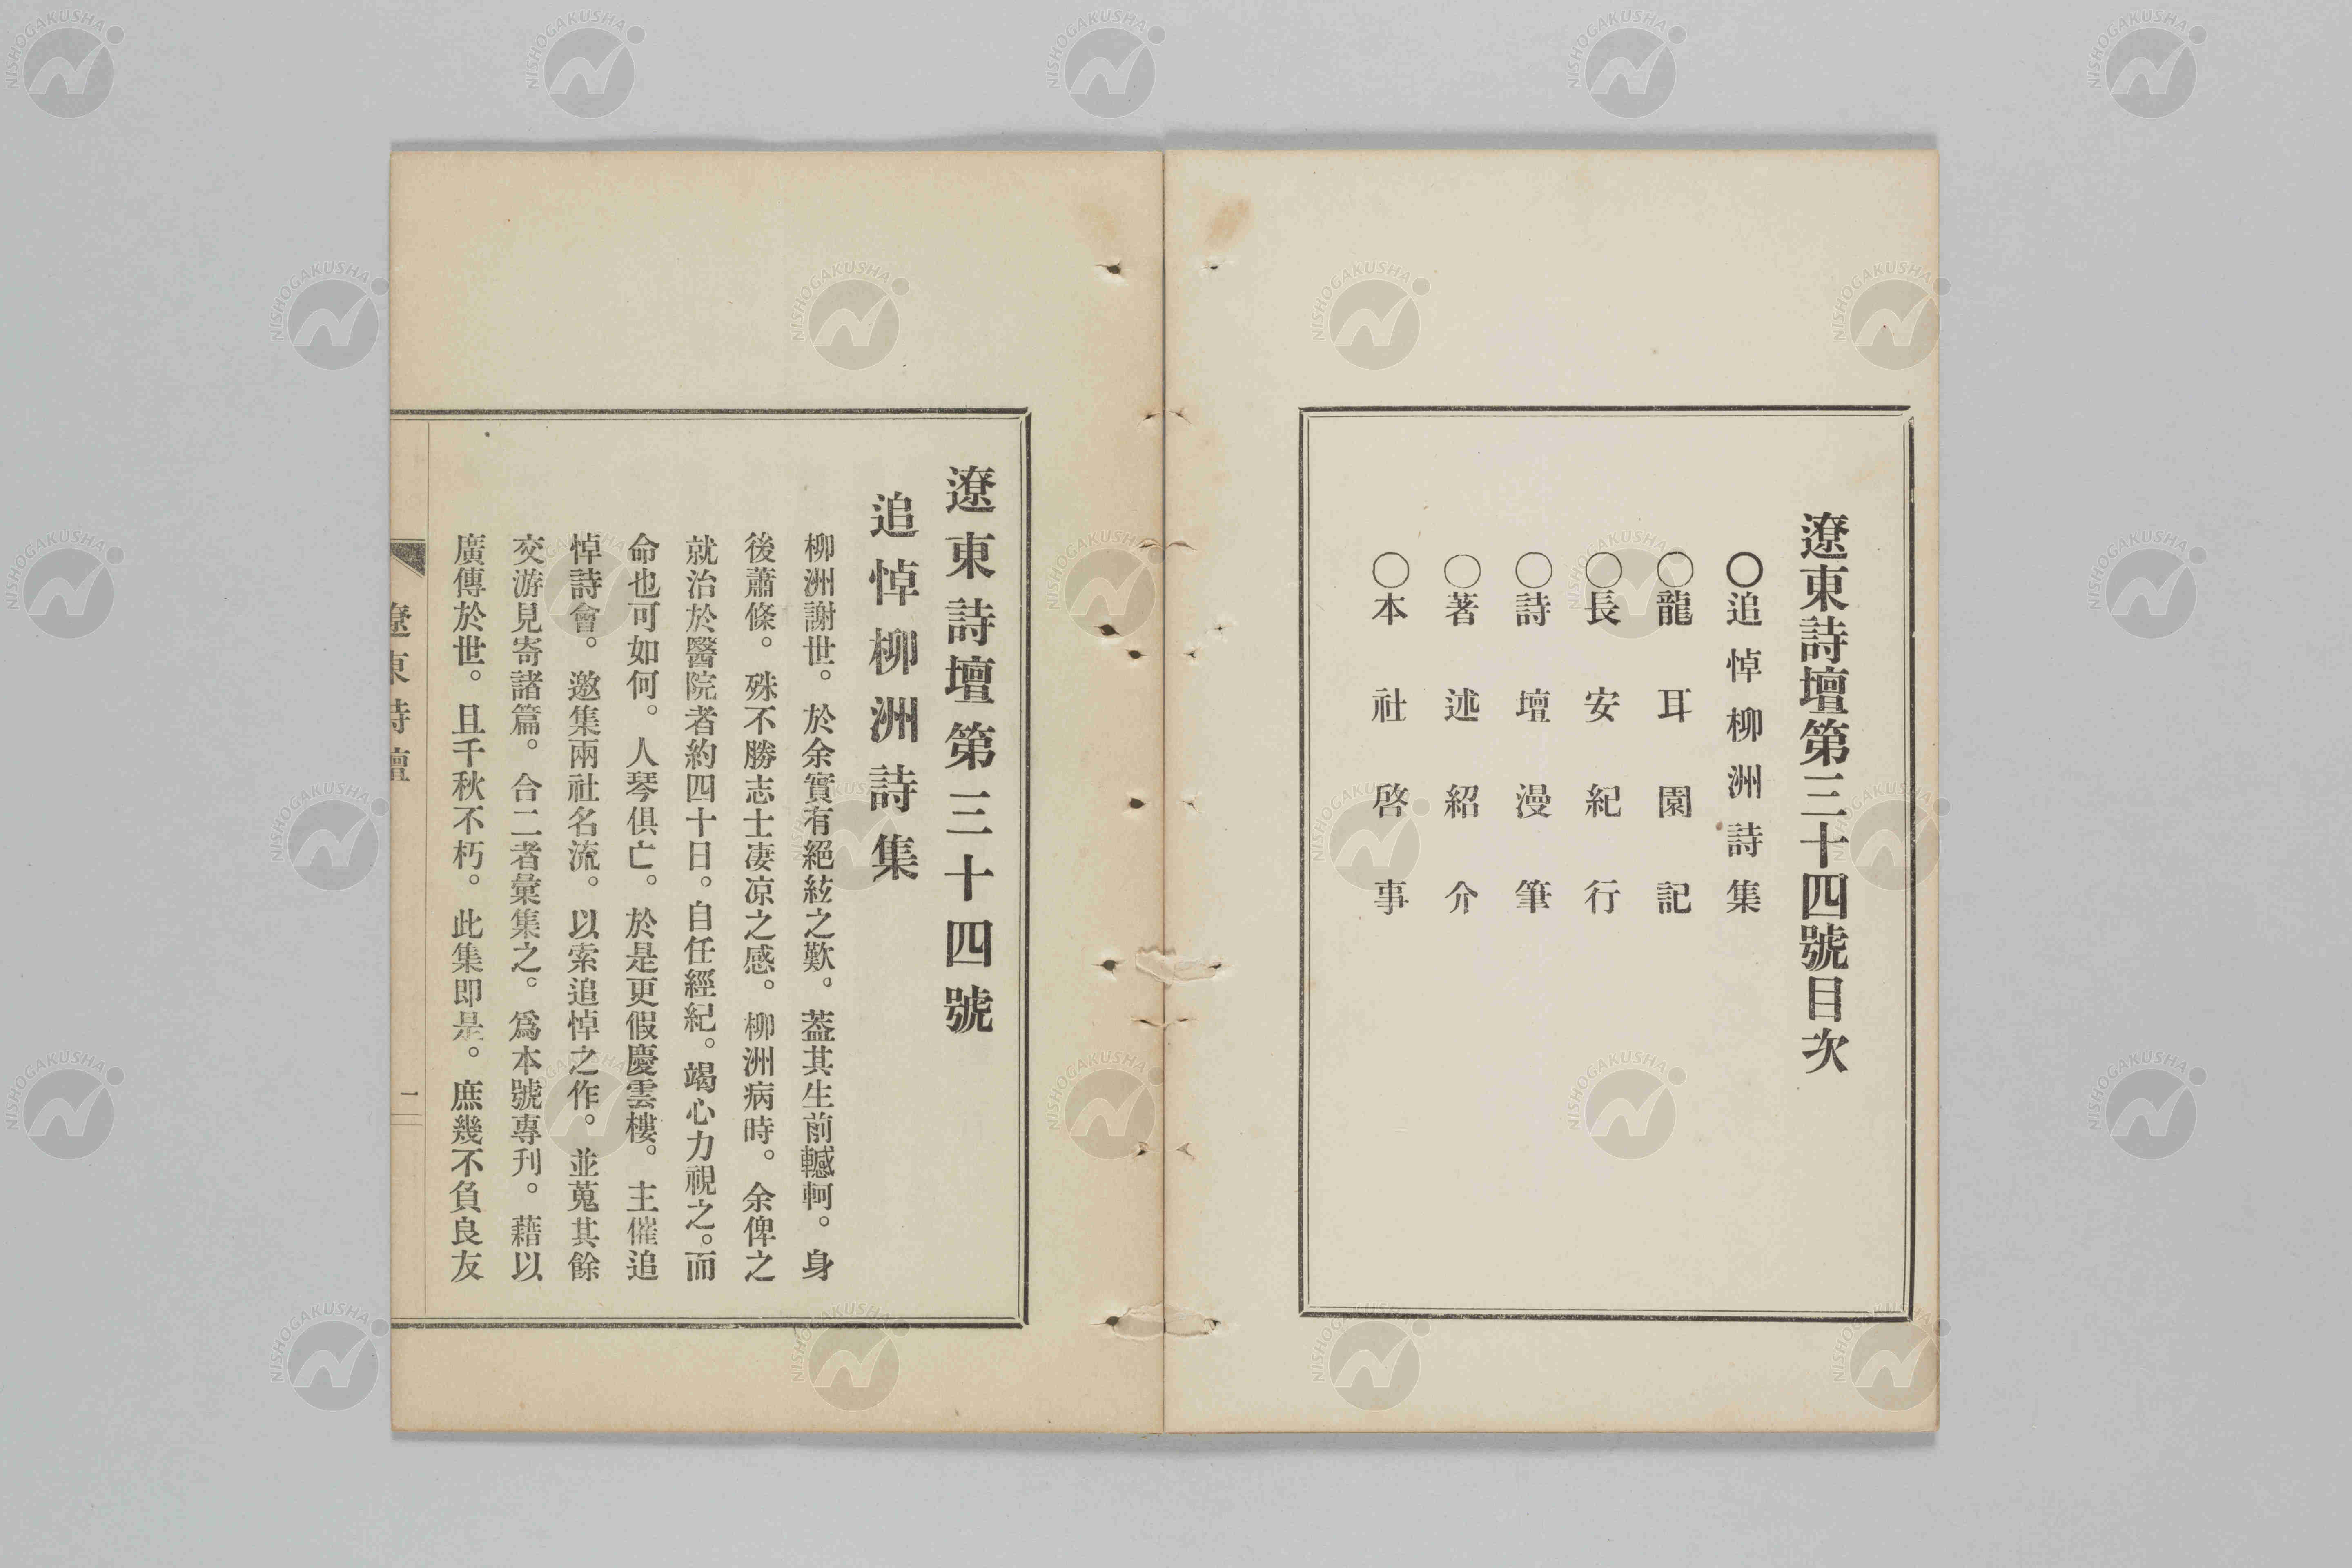 遼東詩壇第三十四號目次
〇追悼柳洲詩集
〇龍耳園記
〇長安紀行
〇詩壇漫筆
〇著述紹介
〇本社啓事
遼東詩壇第三十四號
追悼柳洲詩集
柳洲謝世。於余實有絕絃之歎。葢其生前轗軻。身
後蕭條。殊不勝志士凄凉之感。柳洲病時。余俾之
就治於醫院者約四十日。自任經紀。竭心力視之。而
命也可如何。人琴俱亡。於是更假慶雲樓。主催追
悼詩會。邀集兩社名流。以索追悼之作。並蒐其餘
交游見寄諸篇。合二者彙集之。爲本號專刋。藉以
廣傳於世。且千秋不朽。此集即是。庶幾不負良友
遼東詩壇
一
NISHOGAKUSHA